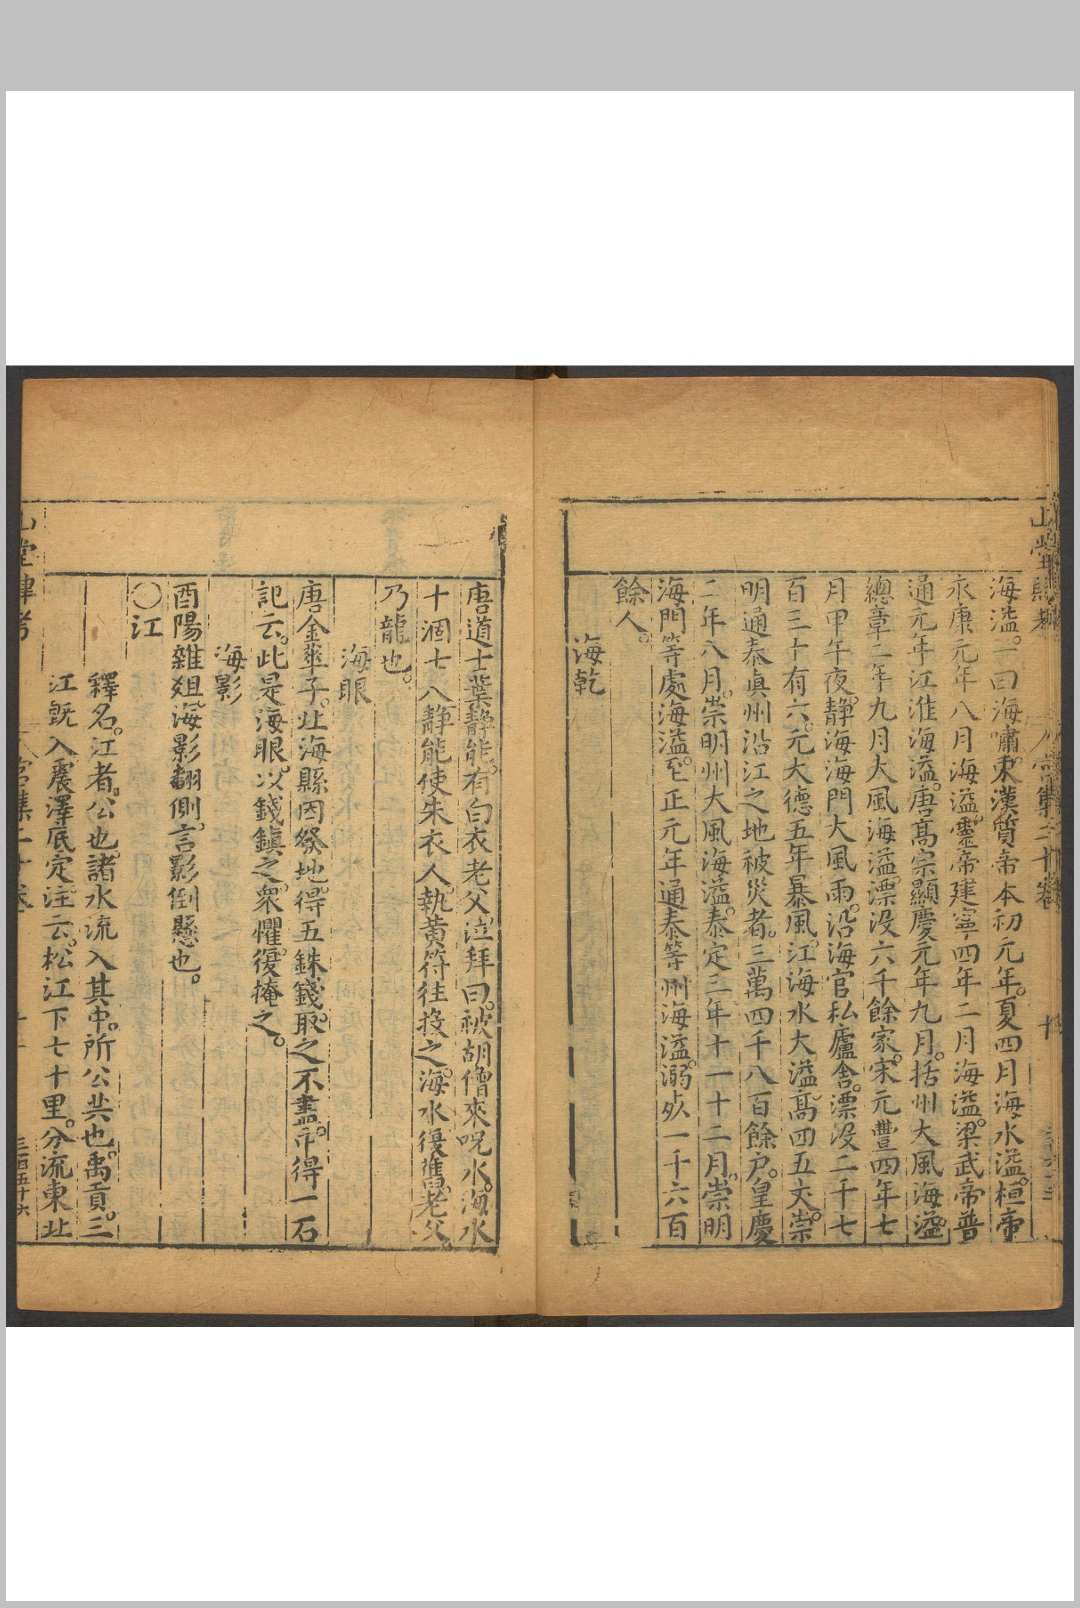 海溢。一曰海嘯。東漢質帝本初元年。夏四月海水溢。桓帝
永康元年八月海溢。靈帝建寧四年二月海溢。梁武帝普
通元年江淮海溢。唐高宗顯慶元年九月。括州大風海溢。
總章二年九月大風海溢。漂没六千餘家。宋元豐四年七
月甲午夜。靜海海門大風雨。沿海官私廬舍。漂没二千七
百三十有六。元大德五年暴風。江海水大溢。高四五丈。崇
明通泰真州沿江之地被災者。三萬四千八百餘户。皇慶
二年八月。崇明州大風海溢。泰定三年十一十二月。崇明
海門等處海溢。至正元年通泰等州海溢。溺死一千六百
餘人。
海乾
唐道士葉静能。有白衣老父泣拜曰。被胡僧來呪水。海水
十涸七八。静能使朱衣人。執黄符往投之。海水復舊。老父
乃龍也。
海眼
唐金華子。北海縣因發地。得五銖錢。取之不盡。中得一石
記云。此是海眼。以錢鎮之。衆懼。復掩之。
海影
酉陽雜俎。海影翻側。言影倒懸也。
〇江
釋名。江者。公也。諸水流入其中。所公共也。禹貢。三
江既入震澤底定。注云。松江下七十里。分流東北
山堂肆考
宫集二十卷
十一
三百五十六